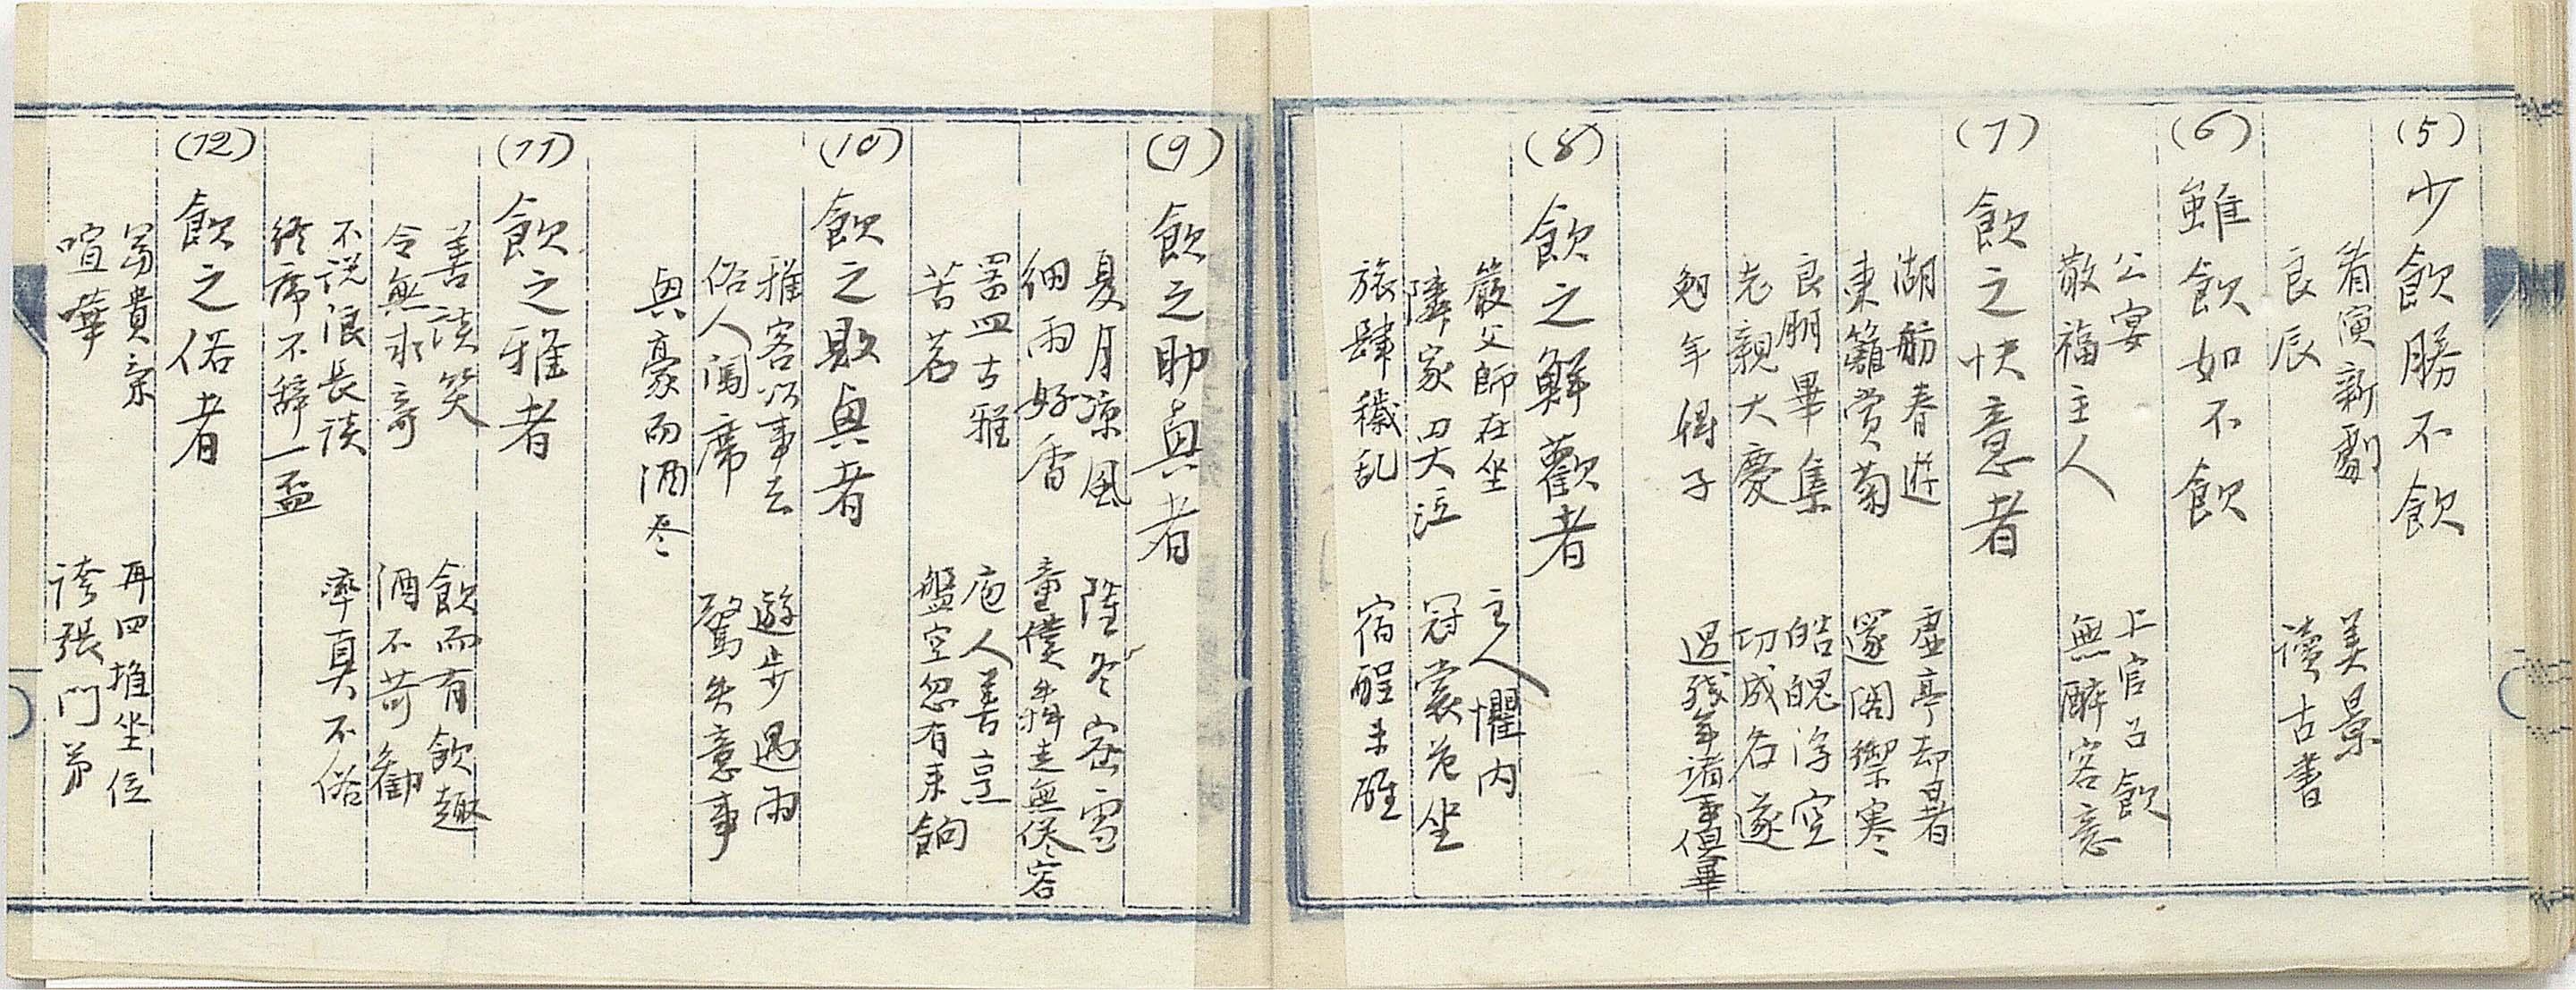 (5) 少飲勝不飲
肴演新劇 美景
良辰 讀古書
(6) 雖飲如不飲
公宴 上官召飲
散福主人 無醉客意
(7) 飲之快意者
湖舫春遊 虛亭却暑
東籬賞菊 邃閣禦寒
良朋畢集 皓魄浮空
老親大慶 功成名遂
年得子 過殘年諸事俱畢
(8) 飲之鮮歡者
嚴父師在坐 主人懼内
隣家哭泣 冠裳危坐
旅肆穢乱 宿酲未醒
(9) 飲之助興者
夏月凉風 隆冬密雪
細雨好香 童僕犇走無俟客
器皿古雅 庖人善烹
苦茗 盤空忽有来餉
(10) 飲之敗興者
雅客以事去 遊步遇雨
俗人闖席 驚失意事
興豪而酒尽
(11) 飲之雅者
善談笑 飲而有飲趣
令無求奇 酒不苛勸
不說浪長談 率真不俗
終席不辭一盃
(12) 飲之俗者
富貴氣 再四推坐位
喧嘩 誇張門第